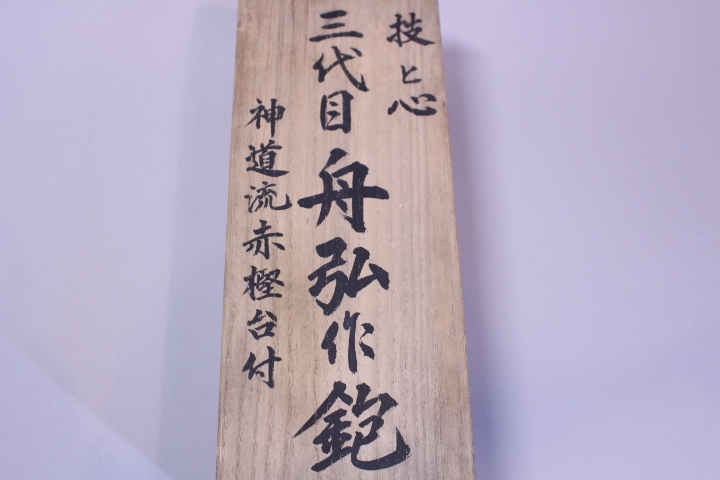 技と心
三代目舟弘作鉋
神道流赤樫台付